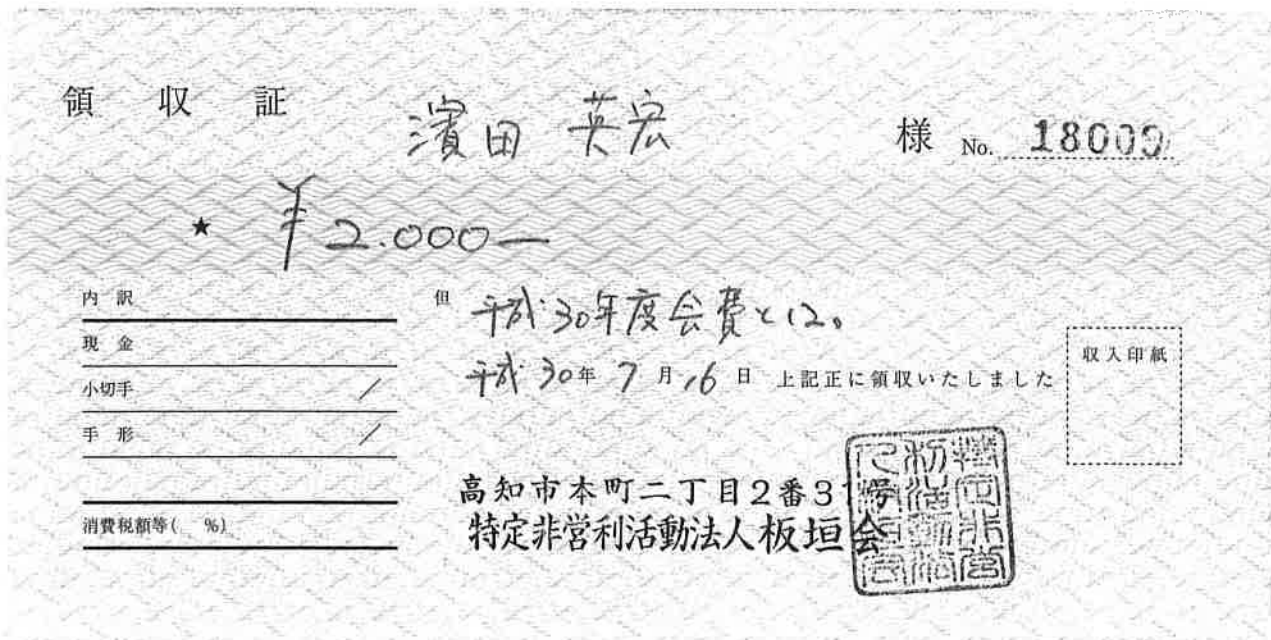 領収証 濱田 英宏 様 No. 18009
★ ¥2.000—
内訳
現金
小切手 /
手形 /
消費税額等( %)
但 平成30年度会費として。
平成30年7月16日 上記正に領収いたしました
収入印紙
高知市本町二丁目2番31号
特定非営利活動法人板垣会